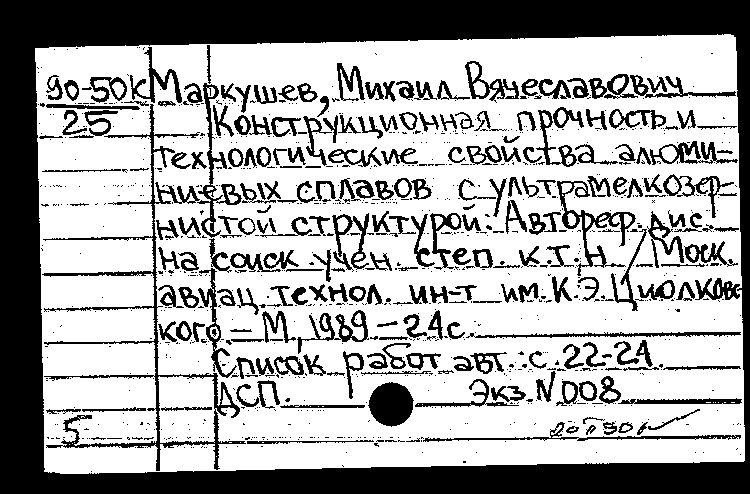 90-50к Маркушев, Михаил Вячеславович
25 Конструкционная прочность и
технологические свойства алюми-
ниевых сплавов с ультрамелкозер-
нистой структурой: Автореф. дис.
на соиск. учен. степ. к.т.н / Моск.
авиац. технол. ин-т им. К.Э.Циолковс
кого – М, 1989 – 24 с.
Список работ авт.: с.22-24.
ДСП. Экз. N 008
5